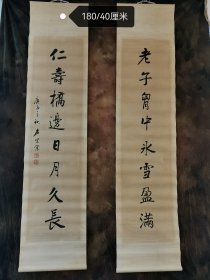 180/40厘米
老子胷中氷雪盈满
仁壽橘邊日月久長